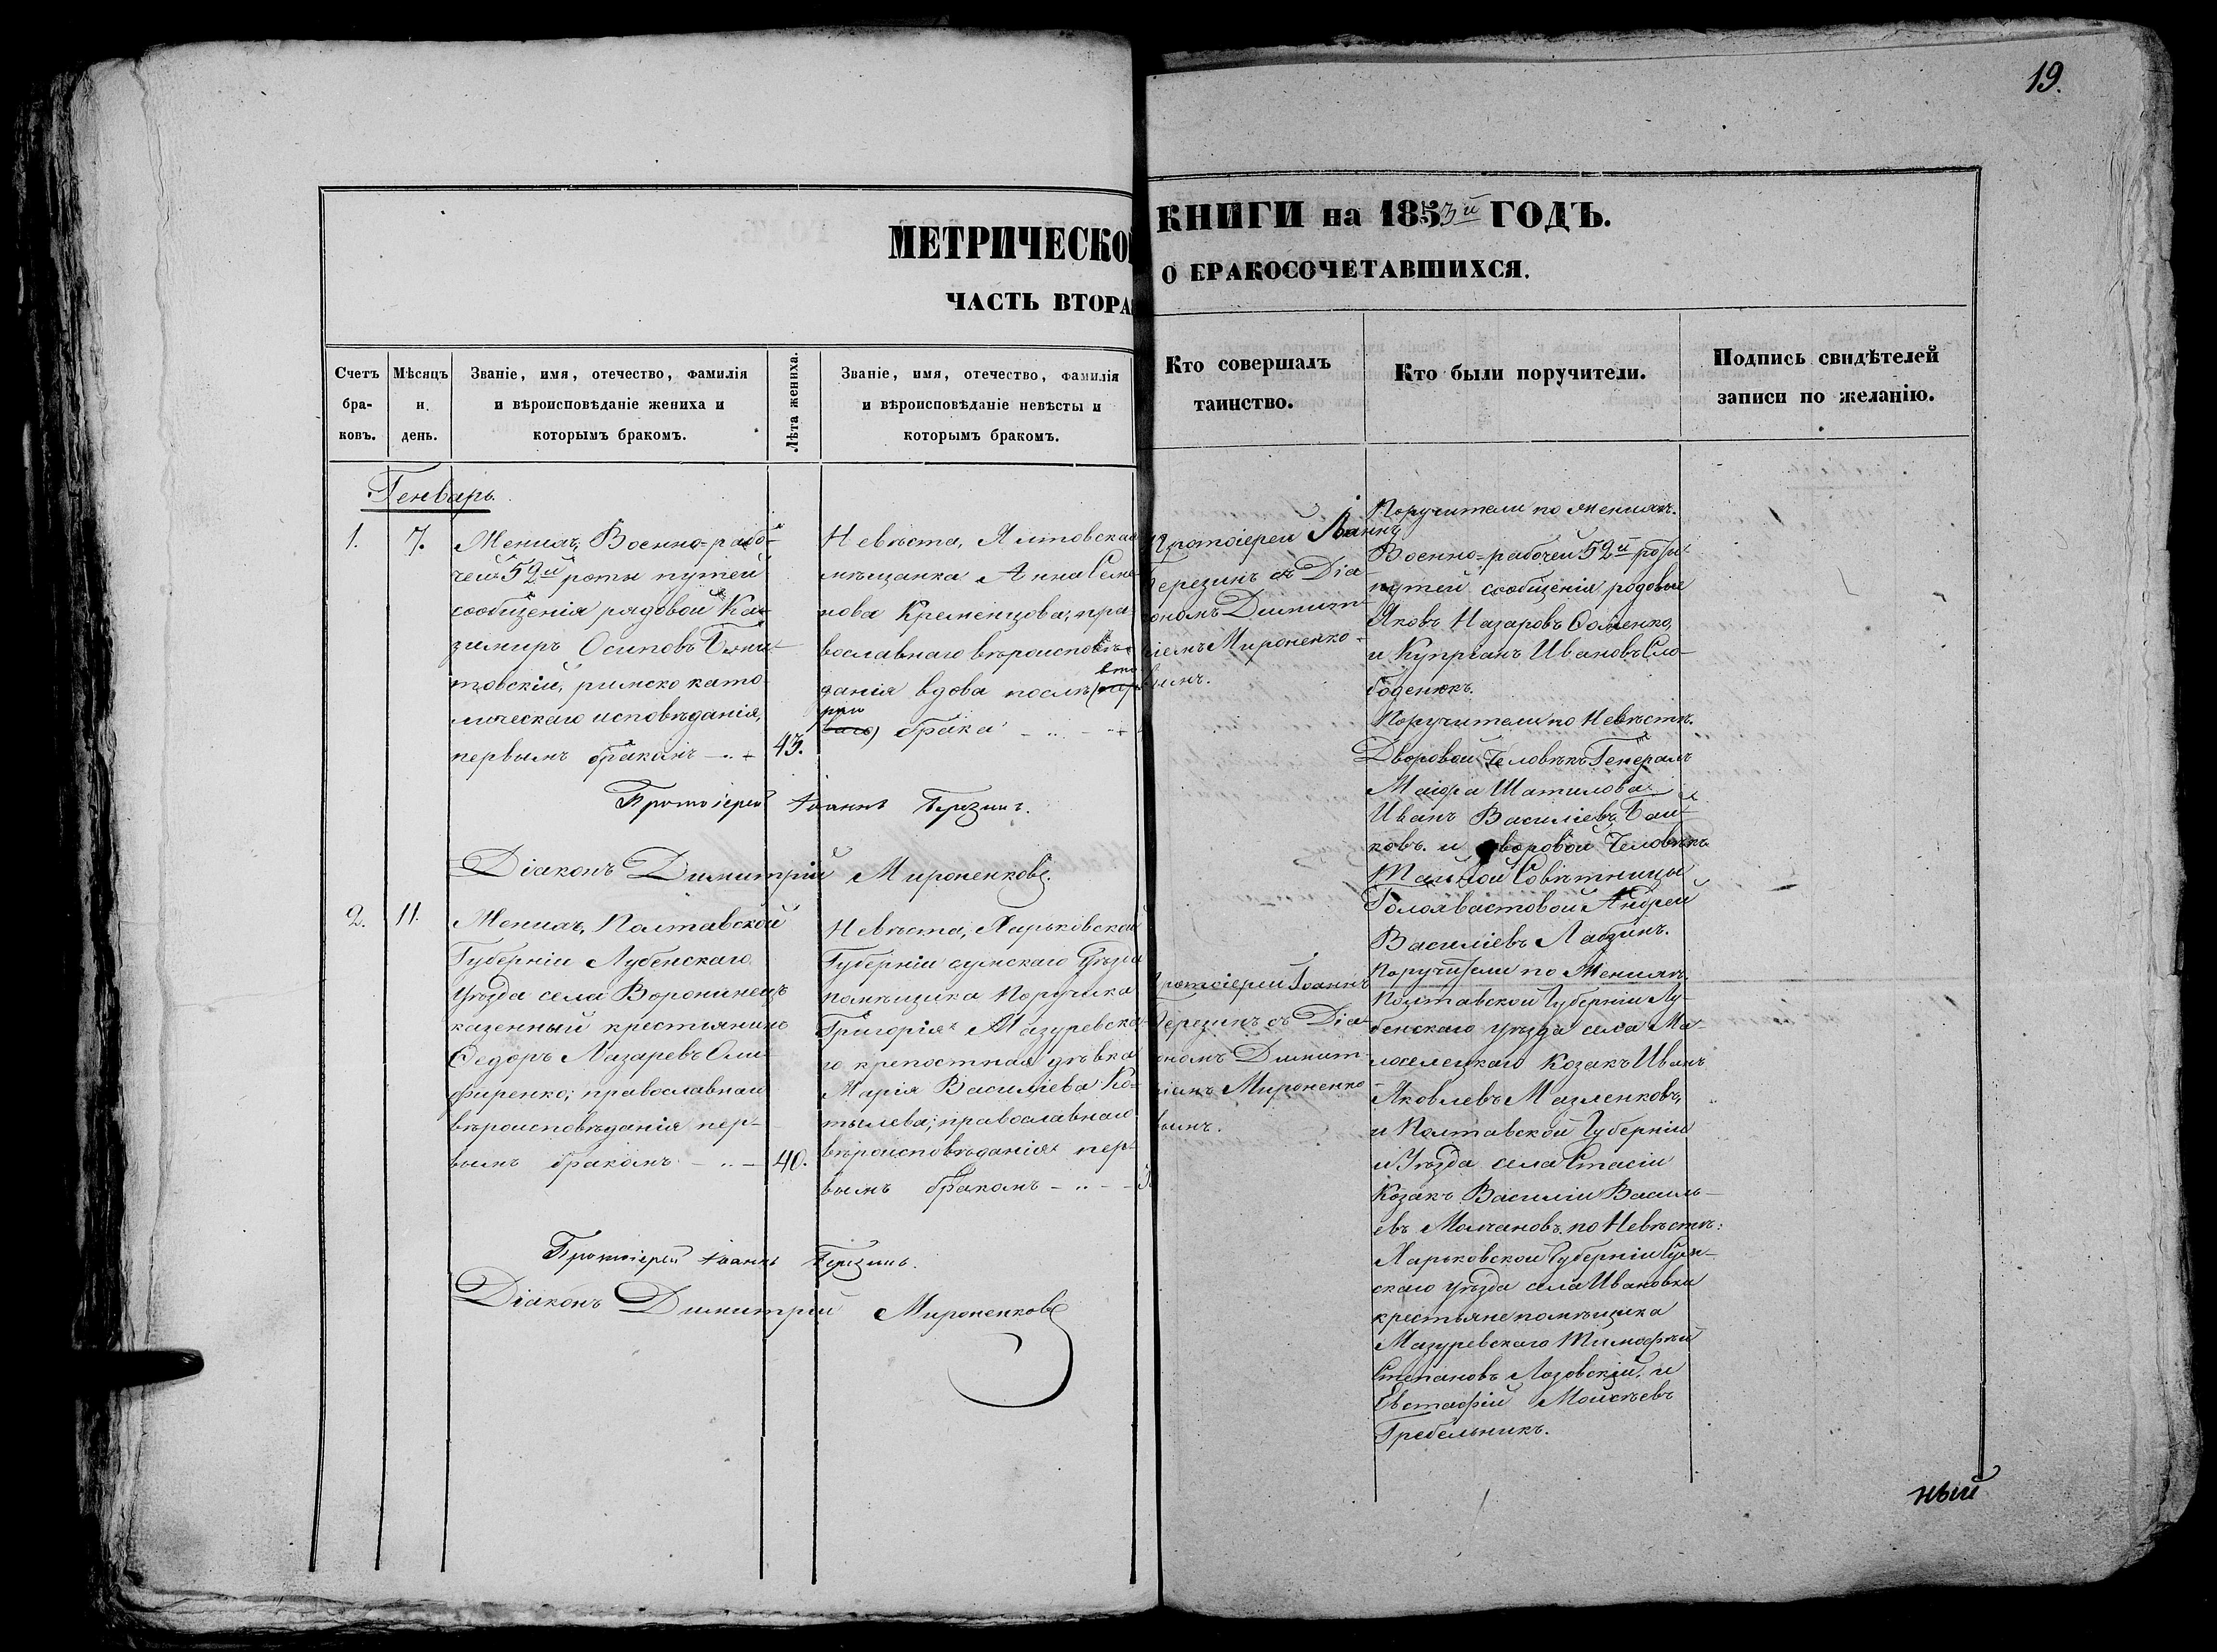 19.
МЕТРИЧЕСКО
ЧАСТЬ ВТОРА
КНИГИ на 1853й ГОДЪ.
О БРАКОСОЧЕТАВШИХСЯ.
Счетъ
бра-
ковъ.
Мѣсяцъ
и
день.
Званіе, имя, отечество, фамилія
и вѣроисповѣданіе жениха и
которымъ бракомъ.
Лѣта жениха.
Званіе, имя, отечество, фамилія
и вѣроисповѣданіе невѣсты и
которымъ бракомъ.
Кто совершалъ
таинство.
Кто были поручители.
Подпись свидѣтелей
записи по желанію.
Генварь.
1.
7.
Женихъ, Военно=рабо-
чей 52й роты путей
сообщенія рядовой Ка-
зимиръ Осиповъ
товскій, римско като-
лическаго исповѣданія,
первымъ бракомъ
43.
Невѣста, Ялтовская
мѣщанка Анна Семе-
нова Кременцова, пра-
вославнаго вѣроисповѣ-
данія вдова послѣ
брака
Протоіерей Іоаннъ
Березинъ съ Діа-
кономъ Димит-
ріемъ Мироненко-
вымъ.
Поручители по Женихѣ.
Военно=рабочей 52й роты
путей сообщенія рядовые
Яковъ Назаровъ Фоменко,
и Купріанъ Ивановъ Сло-
боденюкъ.
Поручители по Невѣстѣ.
Дворовой Человѣкъ Генералъ
Маіора Шатилова
Иванъ Василіевъ
ковъ. и дворовой Человѣкъ
Тайной Совѣтницы
Голохвастовой Андрей
Василіевъ Лабзинъ.
Протоіерей Іоаннъ Березинъ.
Діаконъ Димитрій Мироненковъ.
2.
11.
Женихъ, Полтавской
Губерніи Лубенскаго
Уѣзда села Воронинецъ
казенный крестьянинъ
Федоръ Лазаревъ Оли-
фиренко; православнаго
вѣроисповѣданія пер-
вымъ бракомъ
40.
Невѣста, Харьковской
Губерніи сумскаго Уѣзда
помѣщика Поручика
Григорія Мазуревска-
го крепостная дѣвка
Марія Василіева Ко-
тылева; православнаго
вѣроисповѣданія пер-
вымъ бракомъ
Протоіерей Іоаннъ
Березинъ съ Діа-
кономъ Димит-
ріемъ Мироненко
вымъ.
Поручители по Женихѣ
Полтавской Губерніи Лу-
бенскаго уѣзда села Ма-
лоселецкаго Козакъ Иванъ
Яковлевъ Мазленковъ,
и Полтавской Губерніи
и Уѣзда села Стасіи
Козакъ Василіи Василь-
евъ Молчановъ. по Невѣстѣ:
Харьковской Губерніи Сум-
скаго уѣзда села Ивановки
крестьяне помѣщика
Мазуревскаго Тимофѣй
Степановъ Лозовскій. и
Евстафій Моисѣевъ
Гребельникъ.
Протоіерей Іоаннъ Березинъ.
Діаконъ Димитрій Мироненковъ
ный